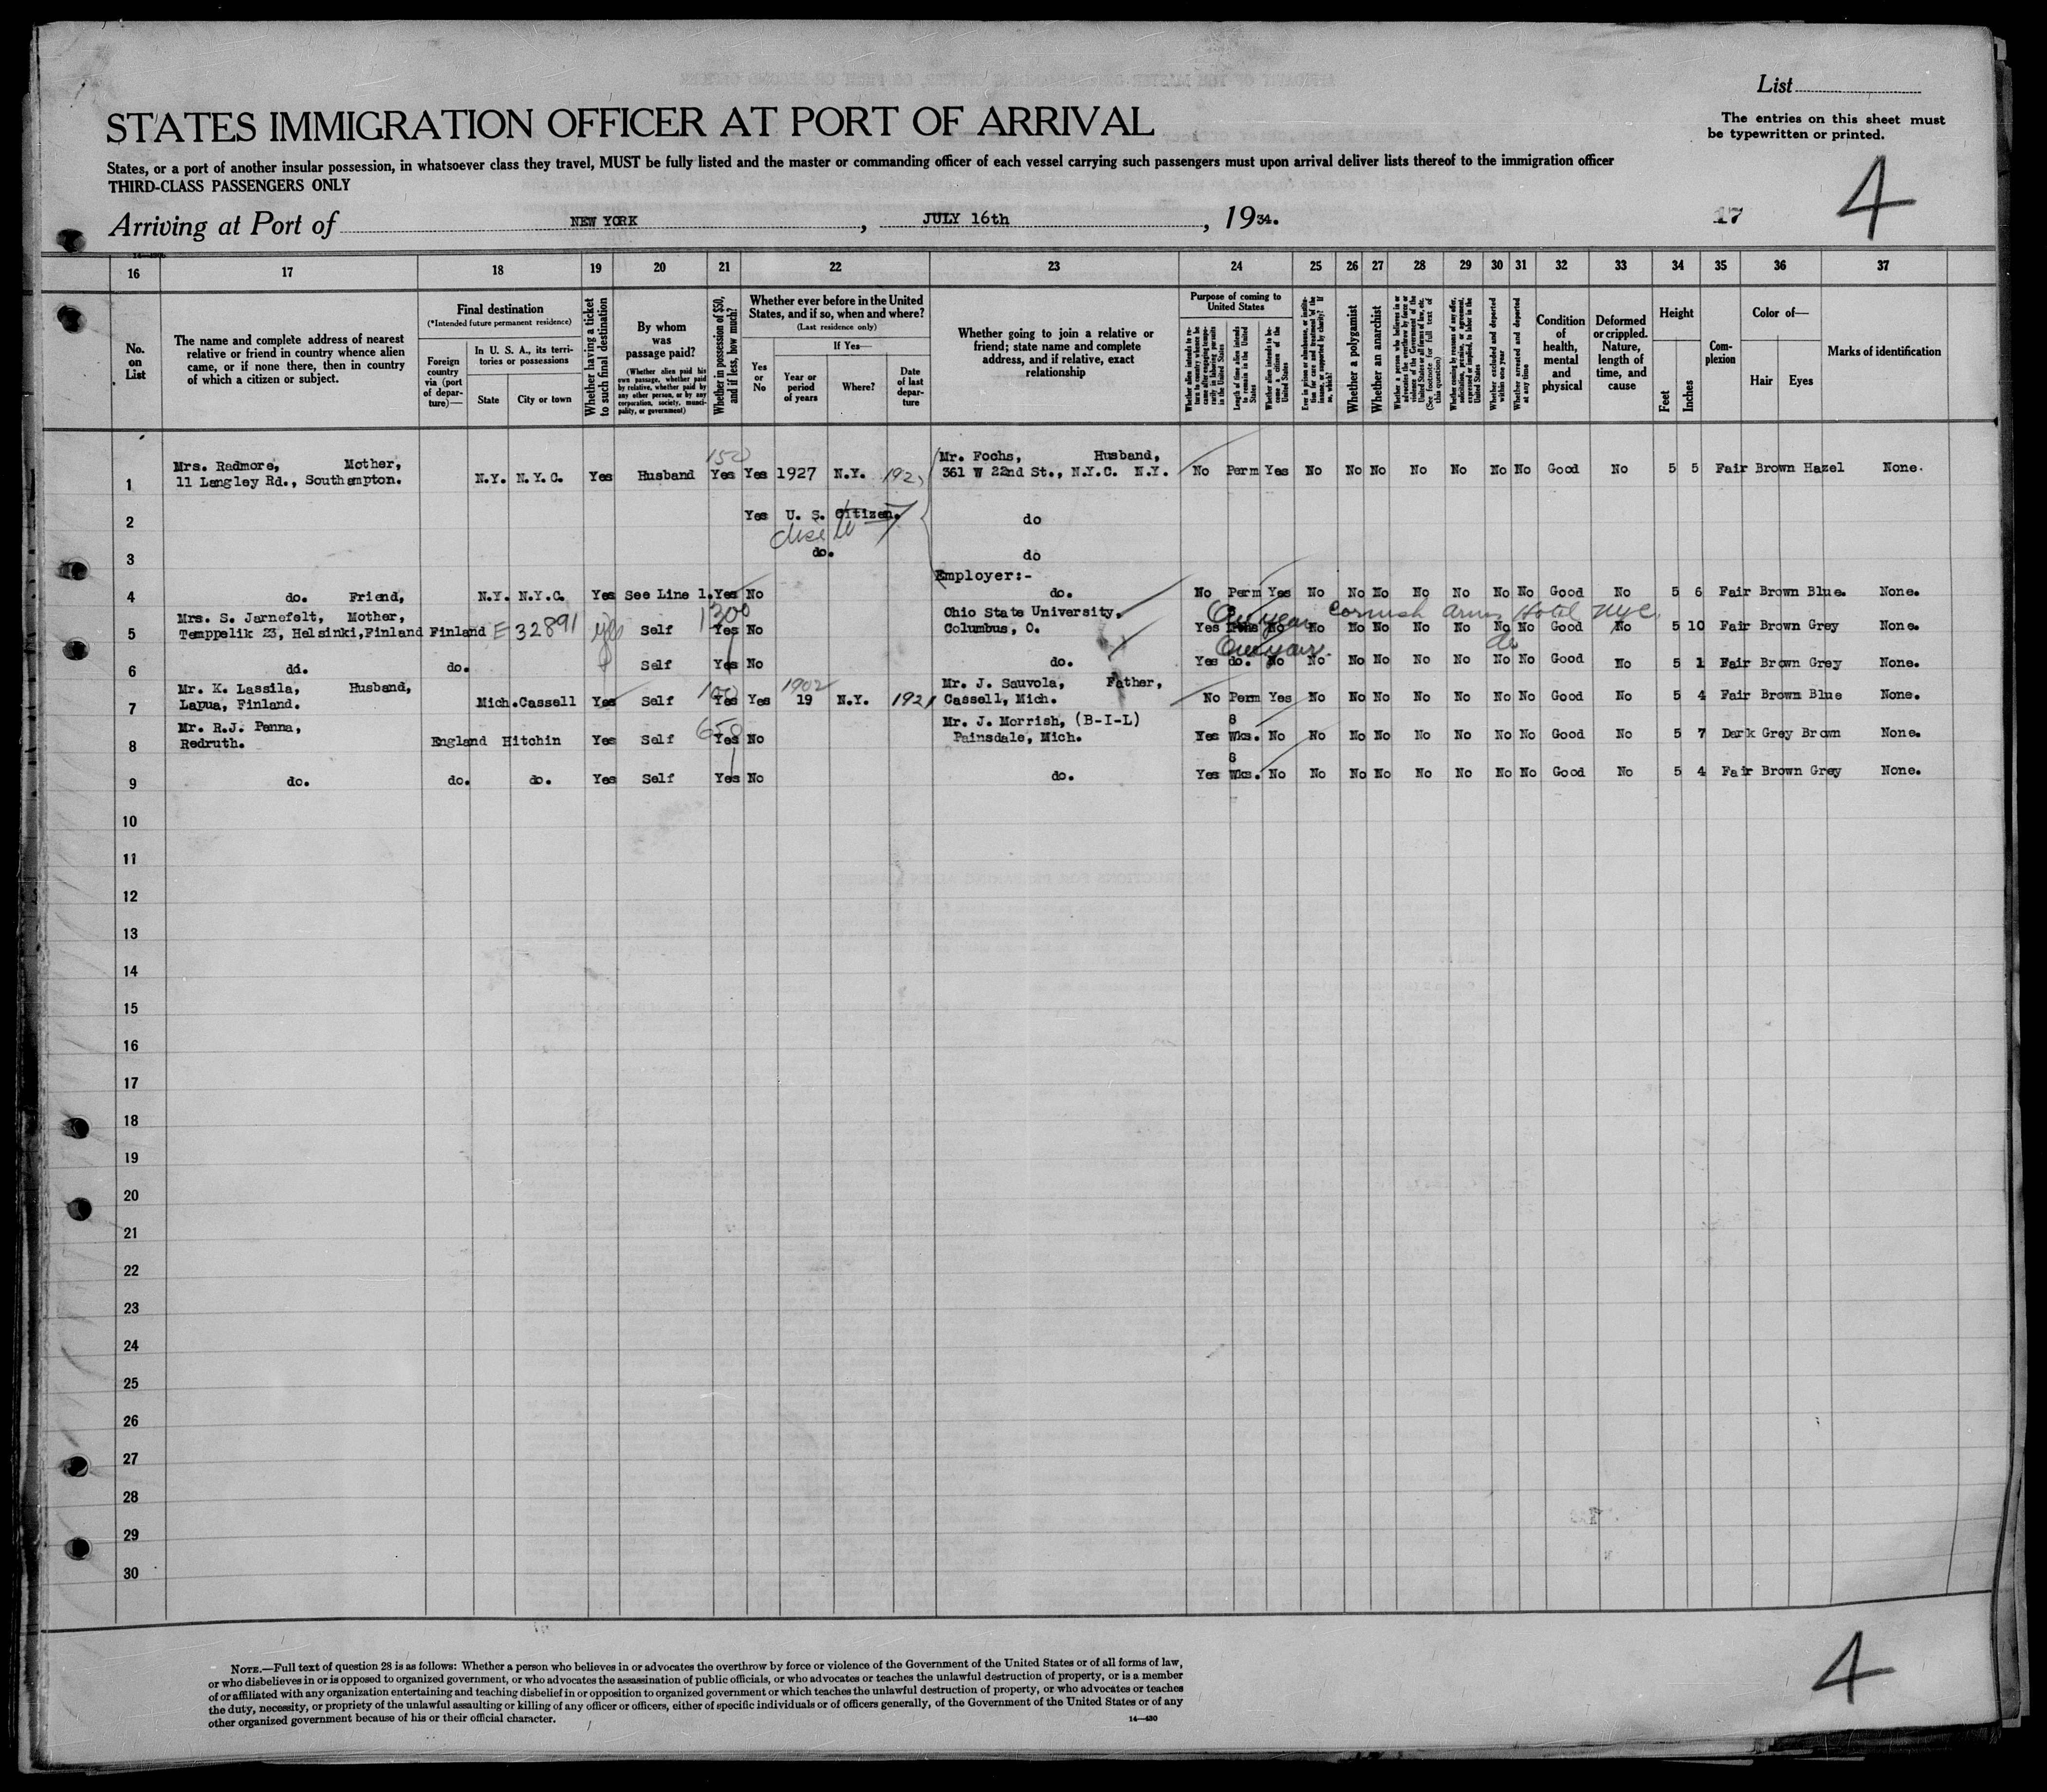 List
The entries on this sheet must
be typewritten or printed.
STATES IMMIGRATION OFFICER AT PORT OF ARRIVAL
States, or a port of another insular possession, in whatsoever class they travel, MUST be fully listed and the master or commanding officer of each vessel carrying such passengers must upon arrival deliver lists thereof to the immigration officer
THIRD-CLASS PASSENGERS ONLY
4
Arriving at Port of NEW YORK, JULY 16th, 1934.
17
16 17 18 19 20 21 22 23 24 25 26 27 28 29 30 31 32 33 34 35 36 37
No. on List
The name and complete address of nearest relative or friend in country whence alien came, or if none there, then in country of which a citizen or subject.
Final destination
(*Intended future permanent residence)
Foreign country via (port of departure)—
In U. S. A., its territories or possessions
State
City or town
Whether having a ticket to such final destination
By whom was passage paid?
(Whether alien paid his own passage, whether paid by relative, whether paid by any other person, or by any corporation, society, municipality, or government)
Whether in possession of $50, and if less, how much?
Whether ever before in the United States, and if so, when and where?
(Last residence only)
Yes or No
If Yes—
Year or period of years
Where?
Date of last departure
Whether going to join a relative or friend; state name and complete address, and if relative, exact relationship
Purpose of coming to United States
Whether alien intends to return to country whence he came after engaging temporarily in laboring pursuits in the United States
Length of time alien intends to remain in the United States
Whether alien intends to become a citizen of the United States
Ever in prison or almshouse, or institution for care and treatment of the insane, or supported by charity? If so, which?
Whether a polygamist
Whether an anarchist
Whether a person who believes in or advocates the overthrow by force or violence of the Government of the United States or all forms of law, etc. (See footnote for full text of this question)
Whether coming by reasons of any offer, solicitation, promise, or agreement, expressed or implied, to labor in the United States
Whether excluded and deported within one year
Whether arrested and deported at any time
Condition of health, mental and physical
Deformed or crippled. Nature, length of time, and cause
Height
Feet
Inches
Complexion
Color of—
Hair
Eyes
Marks of identification
150
1 Mrs. Radmore, Mother, 11 Langley Rd., Southampton. N.Y. N.Y.C. Yes Husband Yes Yes 1927 N.Y. 192 Mr. Fochs, Husband, 361 W 22nd St., N.Y.C. N.Y. No Perm Yes No No No No No No No Good No 5 5 Fair Brown Hazel None.
2 Yes U. S. Citizen. do
3 do. do
Employer:-
4 do. Friend, N.Y. N.Y.C. Yes See Line 1. Yes No do. No Perm Yes No No No No No No No Good No 5 6 Fair Brown Blue. None.
1300 One year Cornish Arms Hotel NYC
5 Mrs. S. Jarnefelt, Mother, Temppelik 23, Helsinki, Finland Finland E 32891 yes Self Yes No Ohio State University. Columbus, O. Yes No No No No No No No No Good No 5 10 Fair Brown Grey None.
One year. do
6 dd. do. Self Yes No do. Yes do. No No No No No No No No Good No 5 1 Fair Brown Grey None.
100 1902
7 Mr. K. Lassila, Husband, Lapua, Finland. Mich. Cassell Yes Self Yes Yes 19 N.Y. 1921 Mr. J. Sauvola, Father, Cassell, Mich. No Perm Yes No No No No No No No Good No 5 4 Fair Brown Blue None.
650
8 Mr. R.J. Penna, Redruth. England Hitchin Yes Self Yes No Mr. J. Morrish, (B-I-L) Painsdale, Mich. Yes 8 Wks. No No No No No No No No Good No 5 7 Dark Grey Brown None.
9 do. do. do. Yes Self Yes No do. Yes 8 Wks. No No No No No No No No Good No 5 4 Fair Brown Grey None.
10
11
12
13
14
15
16
17
18
19
20
21
22
23
24
25
26
27
28
29
30
NOTE.—Full text of question 28 is as follows: Whether a person who believes in or advocates the overthrow by force or violence of the Government of the United States or of all forms of law,
or who disbelieves in or is opposed to organized government, or who advocates the assassination of public officials, or who advocates or teaches the unlawful destruction of property, or is a member
of or affiliated with any organization entertaining and teaching disbelief in or opposition to organized government or which teaches the unlawful destruction of property, or who advocates or teaches
the duty, necessity, or propriety of the unlawful assaulting or killing of any officer or officers, either of specific individuals or of officers generally, of the Government of the United States or of any
other organized government because of his or their official character.
14—430
4